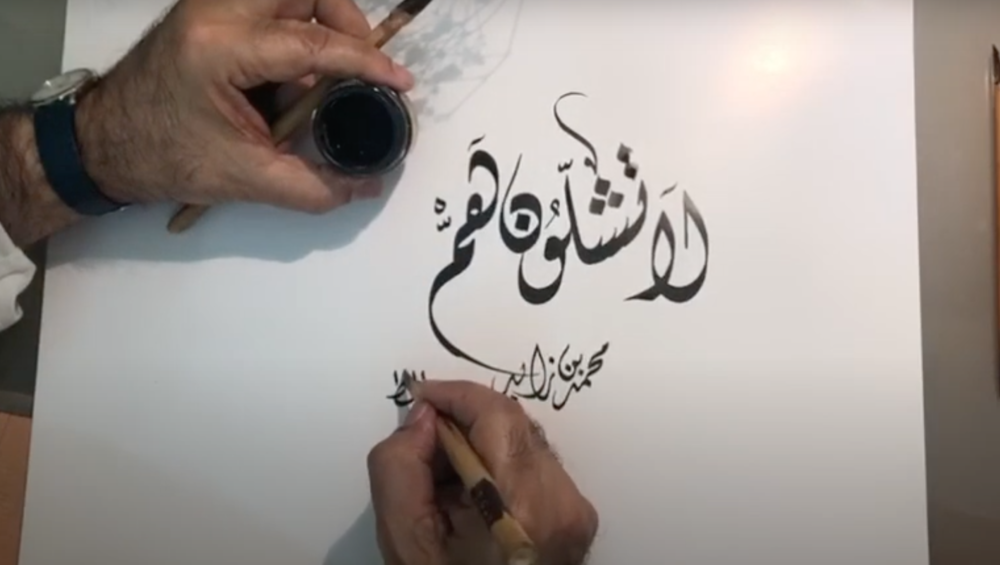 لا تشلّون هَمّ
محمد بن زايد